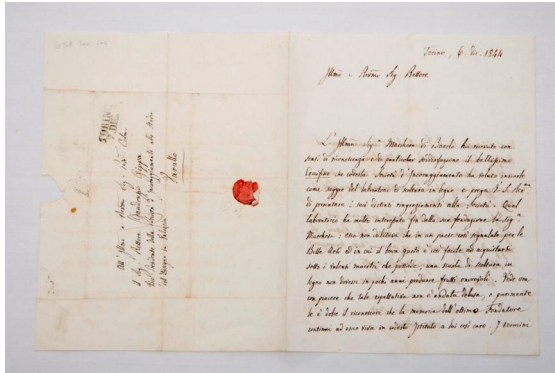 Torino, 6. Dic. 1844
Illmo e Revmo Sig Rettore
L'Illma Sigª Marchesa di Barolo ha ricevuto con
sensi di riconoscenza e di particolar soddisfazione il bellissimo
che codesta Società d'Incoraggiamento ha voluto inviarle
come saggio del laboratorio di scultura in legno e prega V. S. Revª
di presentare i suoi distinti ringraziamenti alla Società. Quel
laboratorio ha molto interessato fin dalla sua fondazione la Sigª
Marchesa; essa non dubitava che in un paese così segnalato per le
Belle Arti ed in cui il buon gusto è così facile ad acquistarsi
sotto i valenti maestri che possiede, una scuola di scultura in
legno non dovesse in pochi anni produrre frutti. Vede ora
con piacere che tale aspettativa non è andata delusa, e parimente
le è dolce il riconoscere che la memoria dell'ottimo Fondatore
continui ad esser viva in codesto Istituto a lui sì caro. Il termine
TORINO
7 DIC
All' Illmo e Revmo Sig. Sig. Pron. Colmo
il Sig. Rettore
della Società d'Incoraggiamento allo Studio
del Disegno in Valsesia
Varallo